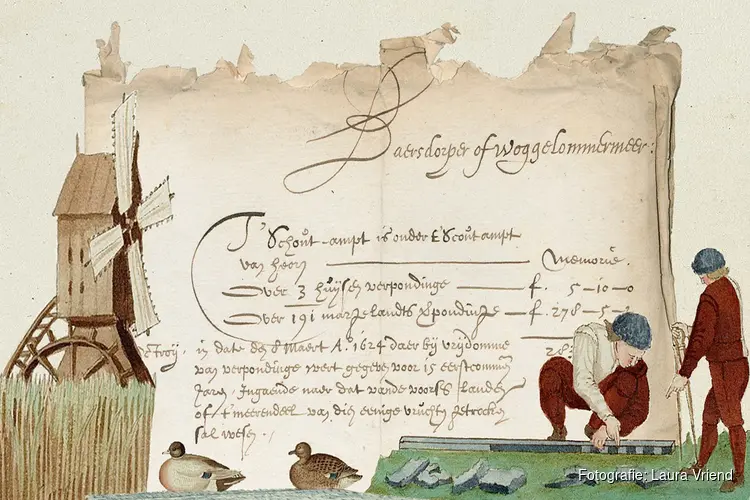 Baersdorper of Woggelommermeer:
T' Schout-ampt is onder t' Scout ampt
van hoorn Memorie.
Over 3 huijsen verpondinge f. 5-10-0
Over 191 f. 278-5-
in date den 8 Maert A.º 1624 daer bij vrijdomme
van verpondinge wert gegeven voor 15 eerstcommen
Jaren, Ingaende naer dat vande voorss. landen
of t' meerendeel van dien eenige vruchten getrocken
sal wesen.
Fotografie: Laura Vriend